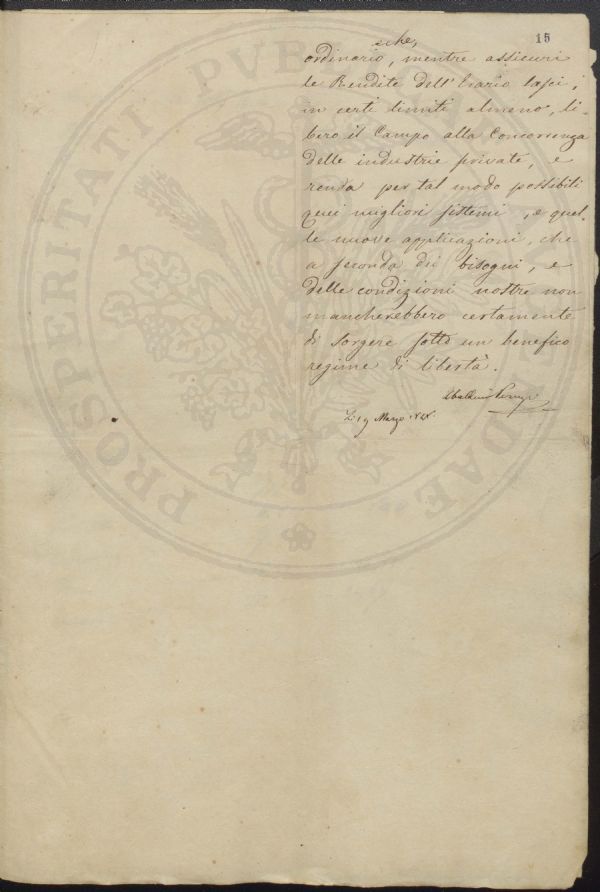 15
che,
ordinario, mentre assicuri
le Rendite dell'Erario lasci,
in certi limiti almeno, li-
bero il Campo alla Concorrenza
delle industrie private, e
renda per tal modo possibili
quei migliori sistemi, e quel-
le nuove applicazioni, che
a seconda dei bisogni, e
delle condizioni nostre non
mancherebbero certamente
di sorgere sotto un benefico
regime di libertà.
Marzo
PROSPERITATI PVB
DAE